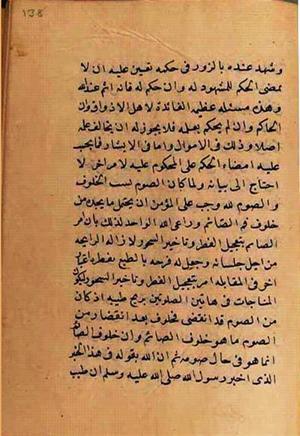 ١٣٨
وشهد عنده بالزور في حكمه تعين عليه ان لا
يمضى الحكم للمشهود له وان حكم له فانه اثم عند الله
وهذه مسئلة عظيمة الفائدة لاهل الاذواق وان
الحاكم وان لم يحكم بعلمه فلا يجوز له ان يخالف علمه
اصلا وذلك في الاموال واما في الابشار فما يجب
عليه امضاء الحكم على المحكوم عليه لامر اخر لا
احتاج الى بيانه ولما كان الصوم سبب الخلوف
والصوم لله وجب على المؤمن ان يحتمل ما يجده من
خلوف فم الصائم وراعى الله الواحد لذلك بان امر
الصائم بتعجيل الفطر وتاخير السحور لازالة الرائحة
من اجل جلسائه وجعل له فرحة بالطبع بفطره
اخر في المقابلة امر بتعجيل الفطر وتاخير السحور
المناجات في هاتين الصلوتين بريح طيبة اذ كان
من الصوم قد انقضى فخلوف بعد انقضاء زمن
الصوم ما هو خلوف الصائم وان خلوف الصائم
انما هو في حال صومه ثم ان الله بقوله في هذا الخبر
الذى اخبر رسول الله صلى الله عليه وسلم ان طيب